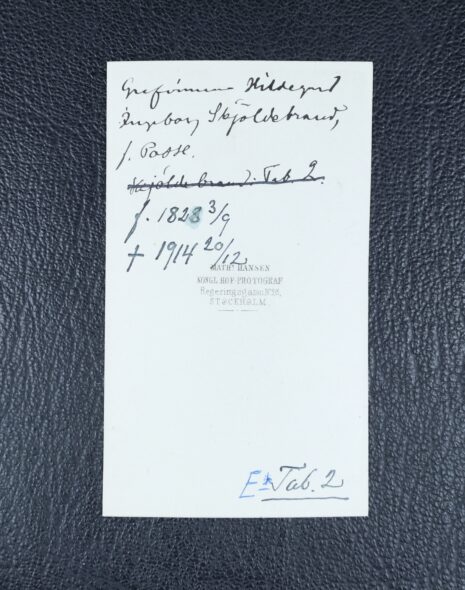 Grefvinnan Hildegard
Ingeborg Skjöldebrand,
f. Posse.
Skjöldebrand. Tab. 2.
f. 1828 3/9
† 1914 20/12
MATHS HANSEN
KONGL. HOF PHOTOGRAF
Regeringsgatan N:
STOCKHOLM
Tab. 2